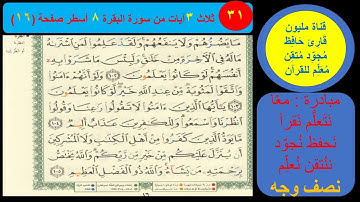 ٣١
ثلاث ٣ آيات من سورة البقرة ٨ أسطر صفحة (١٦)
قناة مليون
قارئ حافظ
مُجوّد مُتقن
مُعلّم للقرآن
مبادرة : معًا
نَتعلّم نَقرأ
نَحفظ نُجوّد
نتُقن نُعلّم
نصف وجه
مَا يَضُرُّهُمْ وَلَا يَنفَعُهُمْ وَلَقَدْ عَلِمُوا لَمَنِ اشْتَرَاهُ
مَا لَهُ فِي الْآخِرَةِ مِنْ خَلَاقٍ وَلَبِئْسَ مَا شَرَوْا بِهِ
أَنفُسَهُمْ لَوْ كَانُوا يَعْلَمُونَ ١٠٢ وَلَوْ أَنَّهُمْ آمَنُوا
وَاتَّقَوْا لَمَثُوبَةٌ مِّنْ عِندِ اللَّهِ خَيْرٌ لَّوْ كَانُوا يَعْلَمُونَ
١٠٣ يَا أَيُّهَا الَّذِينَ آمَنُوا لَا تَقُولُوا رَاعِنَا وَقُولُوا
انظُرْنَا وَاسْمَعُوا وَلِلْكَافِرِينَ عَذَابٌ أَلِيمٌ ١٠٤
مَّا يَوَدُّ الَّذِينَ كَفَرُوا مِنْ أَهْلِ الْكِتَابِ وَلَا الْمُشْرِكِينَ
أَن يُنَزَّلَ عَلَيْكُم مِّنْ خَيْرٍ مِّن رَّبِّكُمْ وَاللَّهُ يَخْتَصُّ
بِرَحْمَتِهِ مَن يَشَاءُ وَاللَّهُ ذُو الْفَضْلِ الْعَظِيمِ ١٠٥
١٦